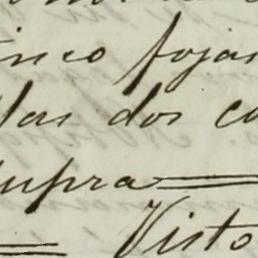 inco fojas
las dos co
supra
Visto